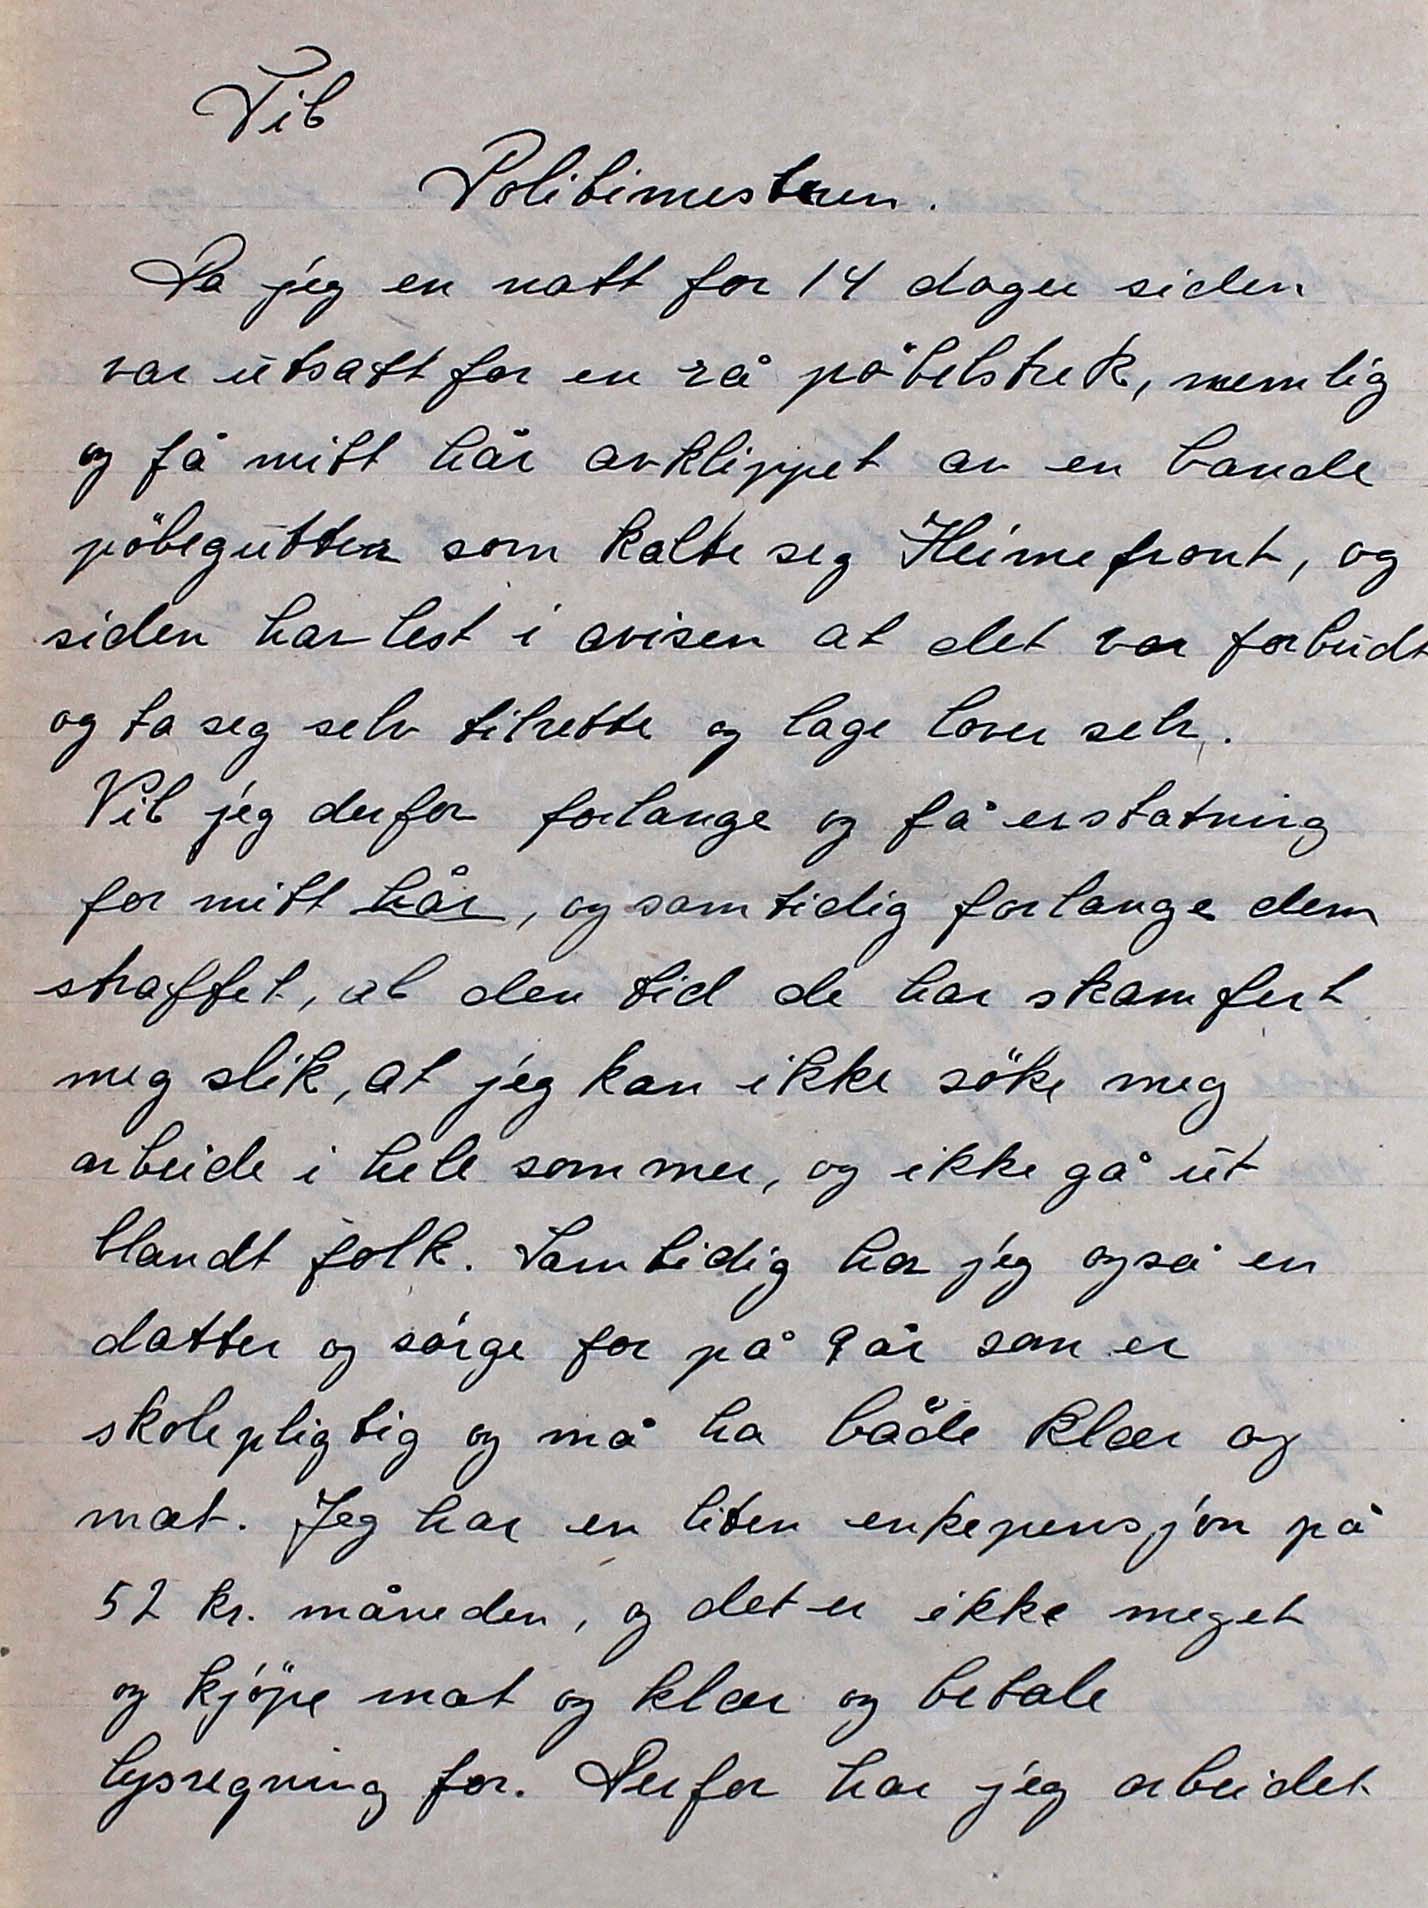 Til
Politimesteren.
Da jeg en natt for 14 dager siden
var utsatt for en rå pöbelstrek, nemlig
og få mitt hår avklippet av en bande
pöbegutter som kalte seg Heimefront, og
siden har lest i avisen at det var forbudt
og ta seg selv tilrette og lage lover selv.
Vil jeg derfor forlange og få erstatning
for mitt hår, og samtidig forlange dem
straffet, al den tid de har skamfert
meg slik, at jeg kan ikke söke meg
arbeide i hele sommer, og ikke gå ut
blandt folk. Samtidig har jeg også en
datter og sörge for på 9 år som er
skolepligtig og må ha både klær og
mat. Jeg har en liten enkepensjon på
52 kr. måneden, og det er ikke meget
og kjöpe mat og klær og betale
lysregning for. Derfor har jeg arbeidet